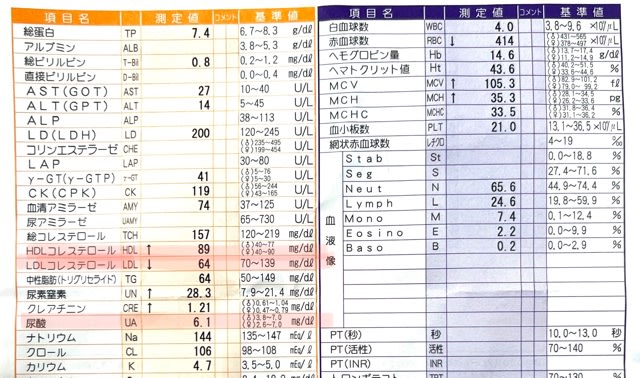 項目名 測定値 コメント 基準値
総蛋白 TP 7.4 6.7~8.3 g/dℓ
アルブミン ALB 3.8~5.3 g/dℓ
総ビリルビン T-Bil 0.8 0.2~1.2 mg/dℓ
直接ビリルビン D-Bil 0.0~0.4 mg/dℓ
AST(GOT) AST 27 10~40 U/L
ALT(GPT) ALT 14 5~45 U/L
ALP ALP 38~113 U/L
LD(LDH) LD 200 120~245 U/L
コリンエステラーゼ CHE (♂)235~495 (♀)199~454 U/L
LAP LAP 30~80 U/L
γ-GT(γ-GTP) γ-GT 41 (♂)5~75 (♀)5~30 U/L
CK(CPK) CK 119 (♂)56~244 (♀)43~165 U/L
血清アミラーゼ AMY 74 37~125 U/L
尿アミラーゼ UAMY 65~730 U/L
総コレステロール TCH 157 120~219 mg/dℓ
HDLコレステロール HDL ↑ 89 (♂)40~77 (♀)40~90 mg/dℓ
LDLコレステロール LDL ↓ 64 70~139 mg/dℓ
中性脂肪(トリグリセライド) TG 64 50~149 mg/dℓ
尿素窒素 UN ↑ 28.3 7.9~21.4 mg/dℓ
クレアチニン CRE ↑ 1.21 (♂)0.61~1.04 (♀)0.47~0.79 mg/dℓ
尿酸 UA 6.1 (♂)3.8~7.0 (♀)2.6~7.0 mg/dℓ
ナトリウム Na 144 135~147 mEq/ℓ
クロール CL 106 98~108 mEq/ℓ
カリウム K 4.7 3.5~5.0 mEq/ℓ
項目名 測定値 コメント 基準値
白血球数 WBC 4.0 3.8~9.6 ×10³/μL
赤血球数 RBC ↓ 414 (♂)431~565 (♀)378~497 ×10⁴/μL
ヘモグロビン量 Hb 14.6 (♂)13.7~17.4 (♀)11.2~14.9 g/dℓ
ヘマトクリット値 Ht 43.6 (♂)40.2~51.5 (♀)33.6~44.6 %
MCV MCV ↑ 105.3 (♂)82.9~101.2 (♀)79.0~99.2 fℓ
MCH MCH ↑ 35.3 (♂)28.1~34.5 (♀)26.2~33.6 pg
MCHC MCHC 33.5 %
血小板数 PLT 21.0 13.1~36.5 ×10⁴/μL
網状赤血球数 レチクロ 4~19 ‰
血液像
Stab St 0.0~18.8 %
Seg S 27.4~71.6 %
Neut N 65.6 44.9~74.4 %
Lymph L 24.6 19.8~59.9 %
Mono M 7.4 0.1~12.4 %
Eosino E 2.2 0.0~9.9 %
Baso B 0.2 0.0~2.9 %
PT(秒) 秒 10.0~13.0 秒
PT(活性) 活性 70~140 %
PT(INR) INR